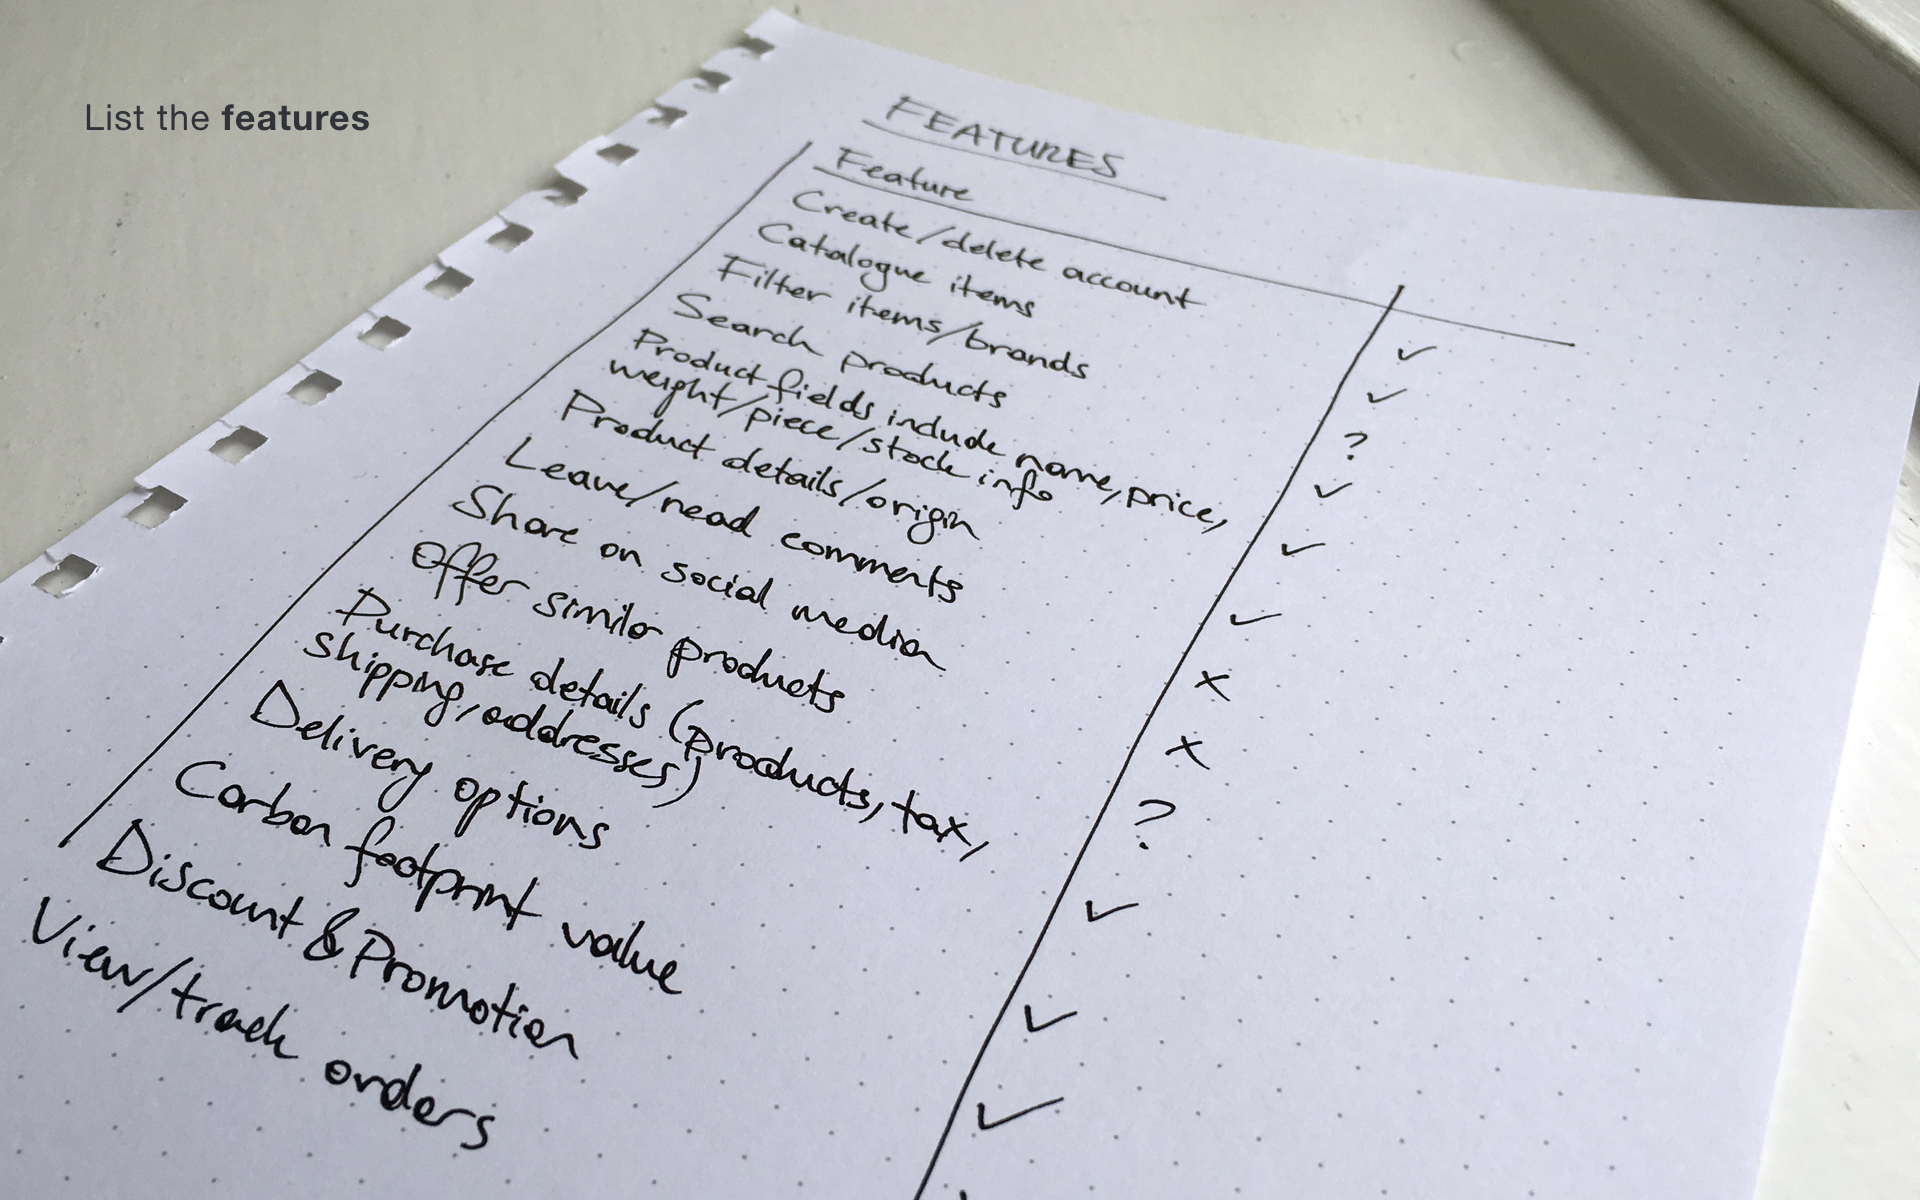 List the features
FEATURES
Feature
Create/delete account ✓
Catalogue items ✓
Filter items/brands ?
Search products ✓
Product fields include name, price,
weight/piece/stock info ✓
Product details/origin ✓
Leave/read comments x
Share on social media x
Offer similar products ?
Purchase details (products, tax,
shipping, addresses) ✓
Delivery options ✓
Carbon footprint value ✓
Discount & Promotion
View/track orders